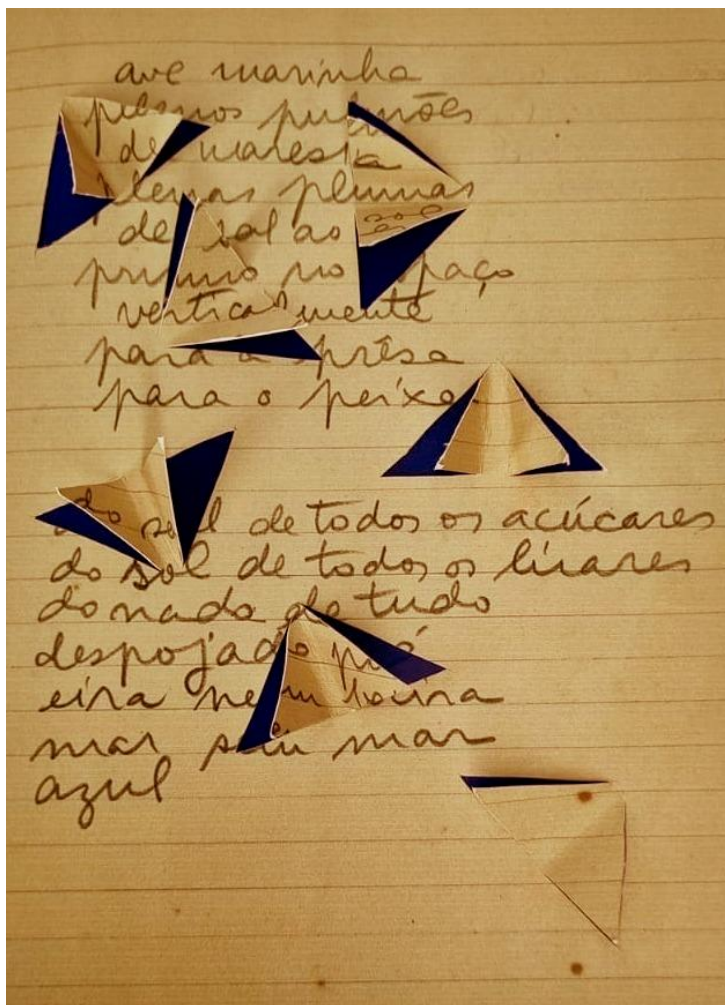 ave marinha
plenos pulmões
de maresia
plenas plumas
de sal ao
prumo no paço
verticalmente
para a prêsa
para o peixe
do sol de todos os açúcares
do sol de todos os
do nada do tudo
despojado pó
eira nem beira
mar sem mar
azul